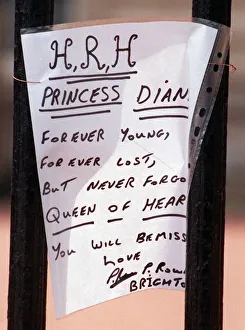 H,R,H
PRINCESS DIAN
FOREVER YOUNG,
FOREVER LOST,
BUT NEVER FORGO
QUEEN OF HEAR
YOU WILL BE MISS
LOVE
P. Row
BRIGHTO